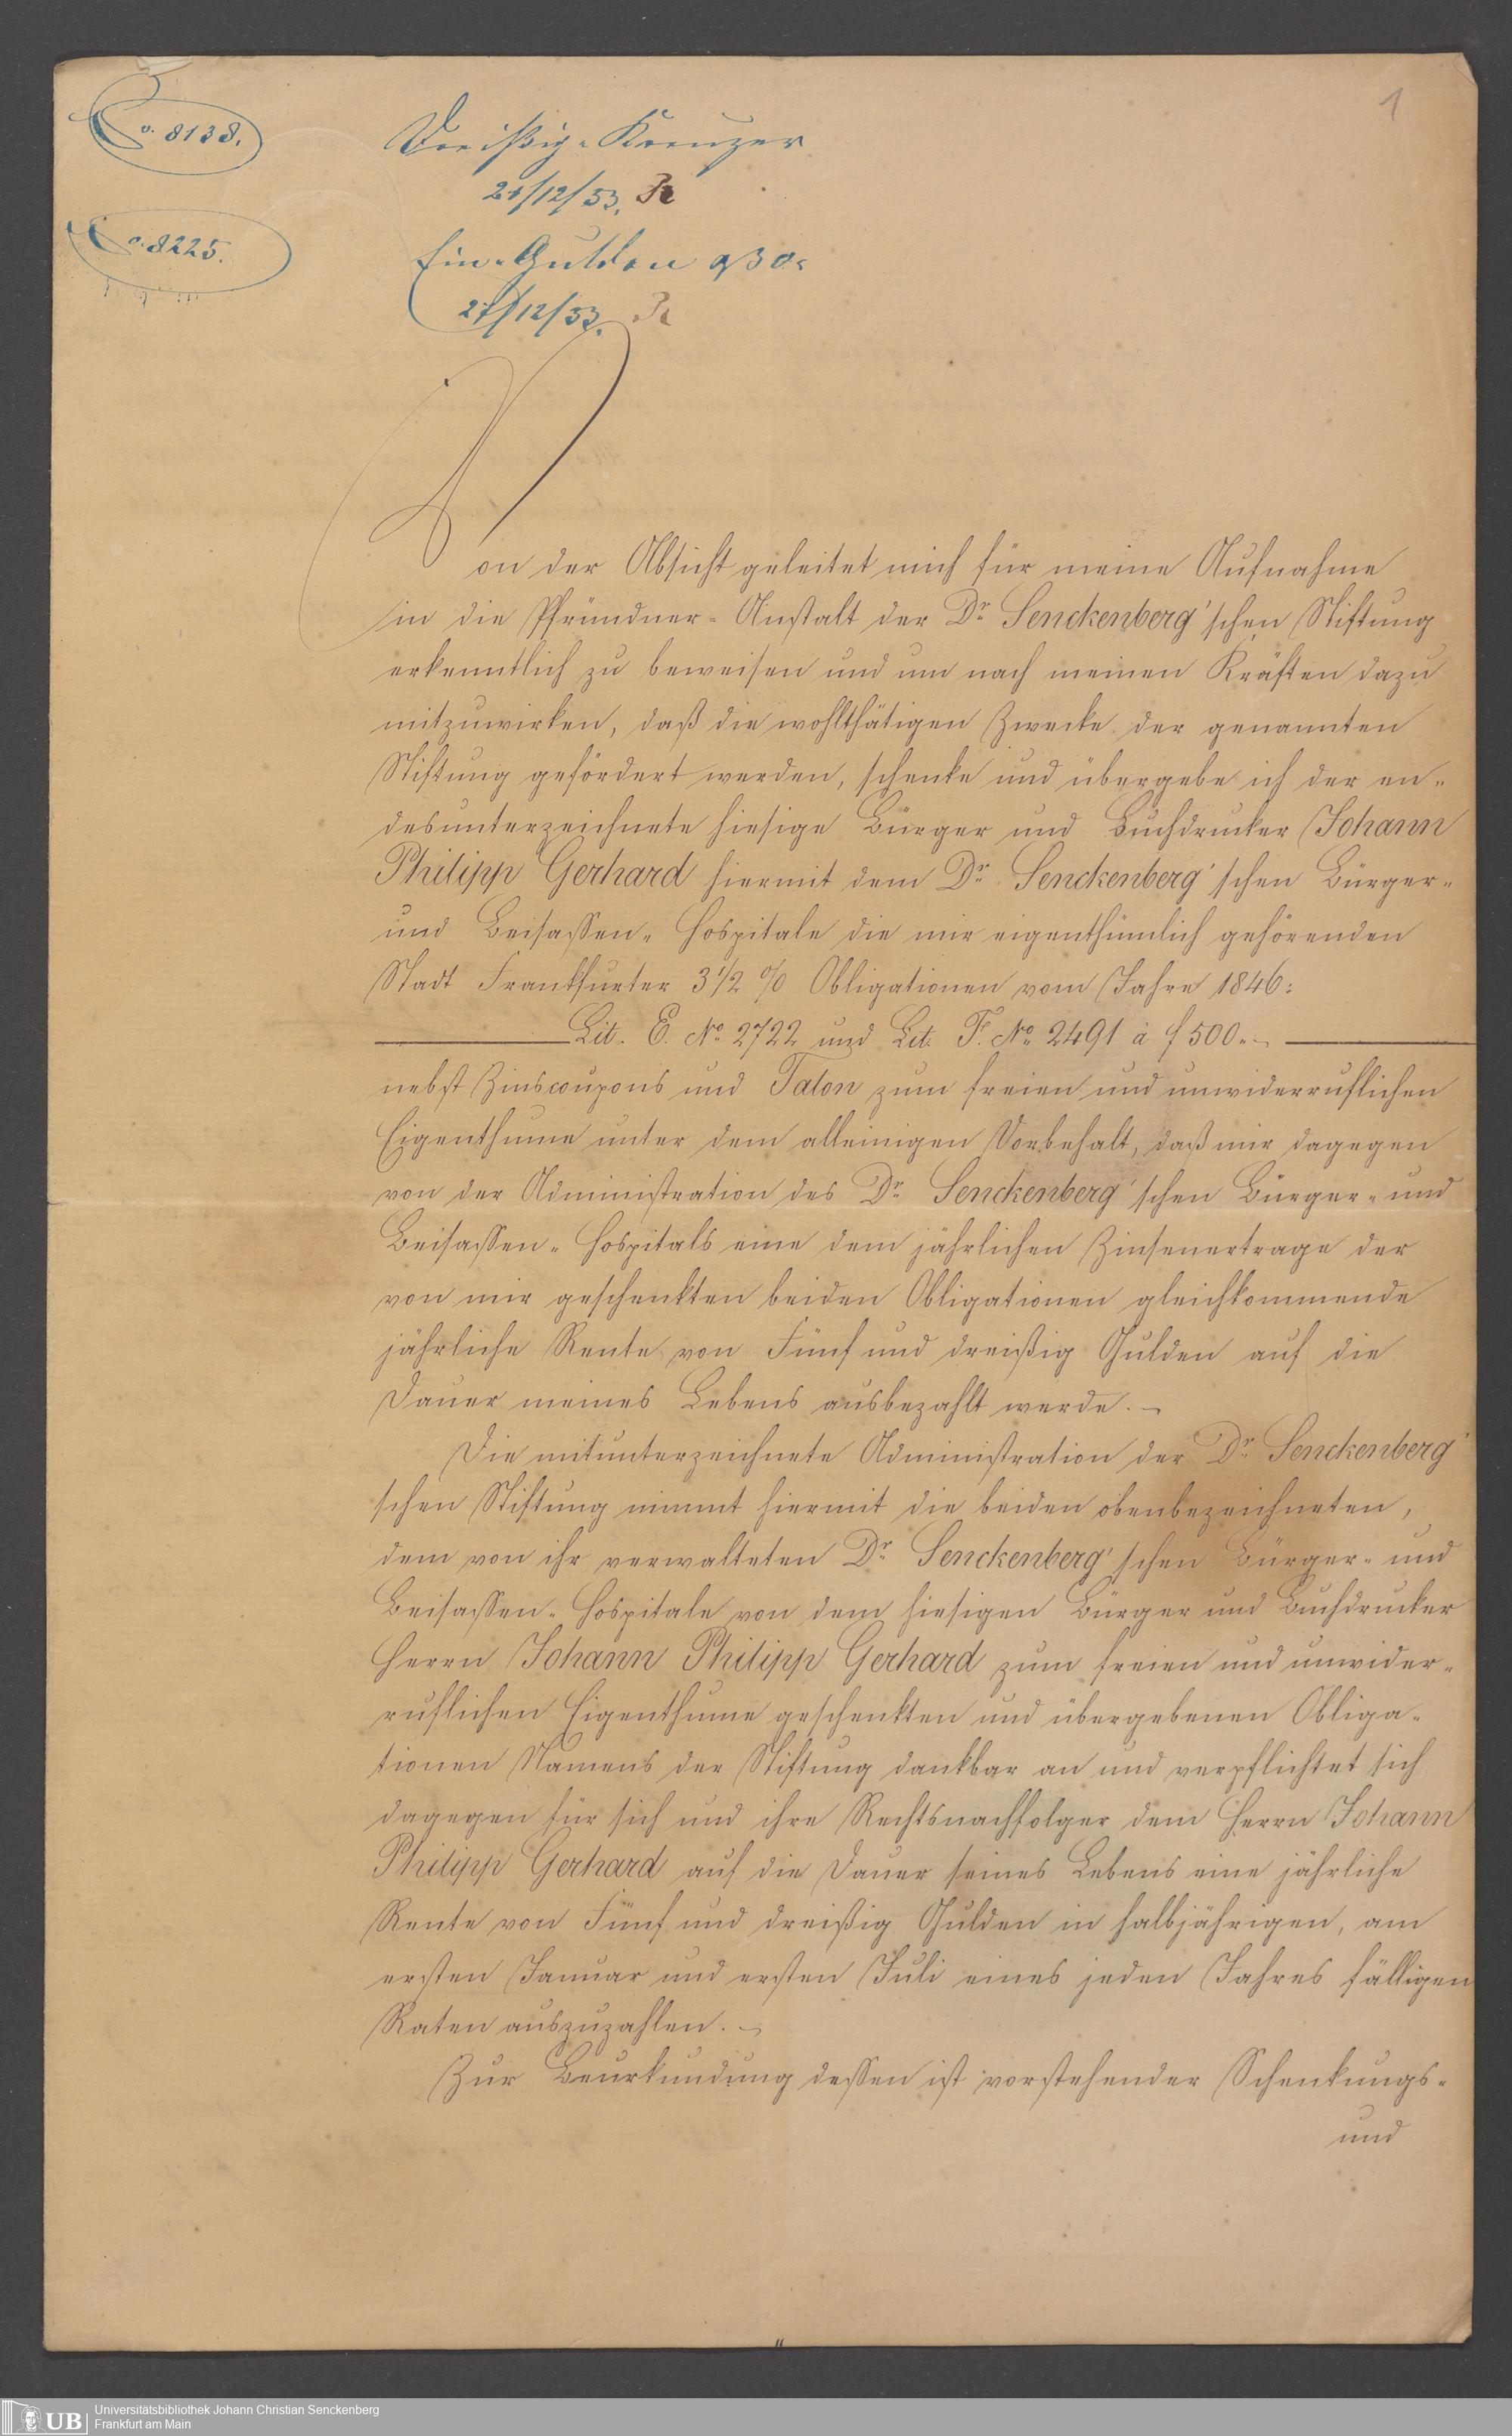 1
No. 8138.
Dreißig Kreuzer
21/12/53.
No. 8225.
Ein Gulden 30
27/12/53.
Von der Absicht geleitet mich für meine Aufnahme
in die Pfründner-Anstalt der Dr. Senckenberg'schen Stiftung
erkenntlich zu beweisen und um nach meinen Kräften dazu
mitzuwirken, daß die wohlthätigen Zwecke der genannten
Stiftung gefördert werden, schenke und übergebe ich der en-
desunterzeichnete hiesige Bürger und Buchdrucker Johann
Philipp Gerhard hiermit dem Dr. Senckenberg'schen Bürger-
und Beisassen-Hospitale die mir eigenthümlich gehörenden
Stadt Frankfurter 3 1/2 % Obligationen vom Jahre 1846:
Lit. E. No. 2722 und Lit. F. No. 2491 à f 500.-
nebst Zinscoupons und Talon zum freien und unwiderruflichen
Eigenthume unter dem alleinigen Vorbehalt, daß mir dagegen
von der Administration des Dr. Senckenberg'schen Bürger- und
Beisassen-Hospitals eine dem jährlichen Zinsenertrage der
von mir geschenkten beiden Obligationen gleichkommende
jährliche Rente von Fünf und dreißig Gulden auf die
Dauer meines Lebens ausbezahlt werde. –
Die mitunterzeichnete Administration der Dr. Senckenberg'
schen Stiftung nimmt hiermit die beiden obenbezeichneten,
dem von ihr verwalteten Dr. Senckenberg'schen Bürger- und
Beisassen-Hospitale von dem hiesigen Bürger und Buchdrucker
Herrn Johann Philipp Gerhard zum freien und unwider-
ruflichen Eigenthume geschenkten und übergebenen Obliga-
tionen Namens der Stiftung dankbar an und verpflichtet sich
dagegen für sich und ihre Rechtsnachfolger dem Herrn Johann
Philipp Gerhard auf die Dauer seines Lebens eine jährliche
Rente von Fünf und dreißig Gulden in halbjährigen, am
ersten Januar und ersten Juli eines jeden Jahres fälligen
Raten auszuzahlen. –
Zur Beurkundung dessen ist vorstehender Schenkungs-
und
UB
Universitätsbibliothek Johann Christian Senckenberg
Frankfurt am Main